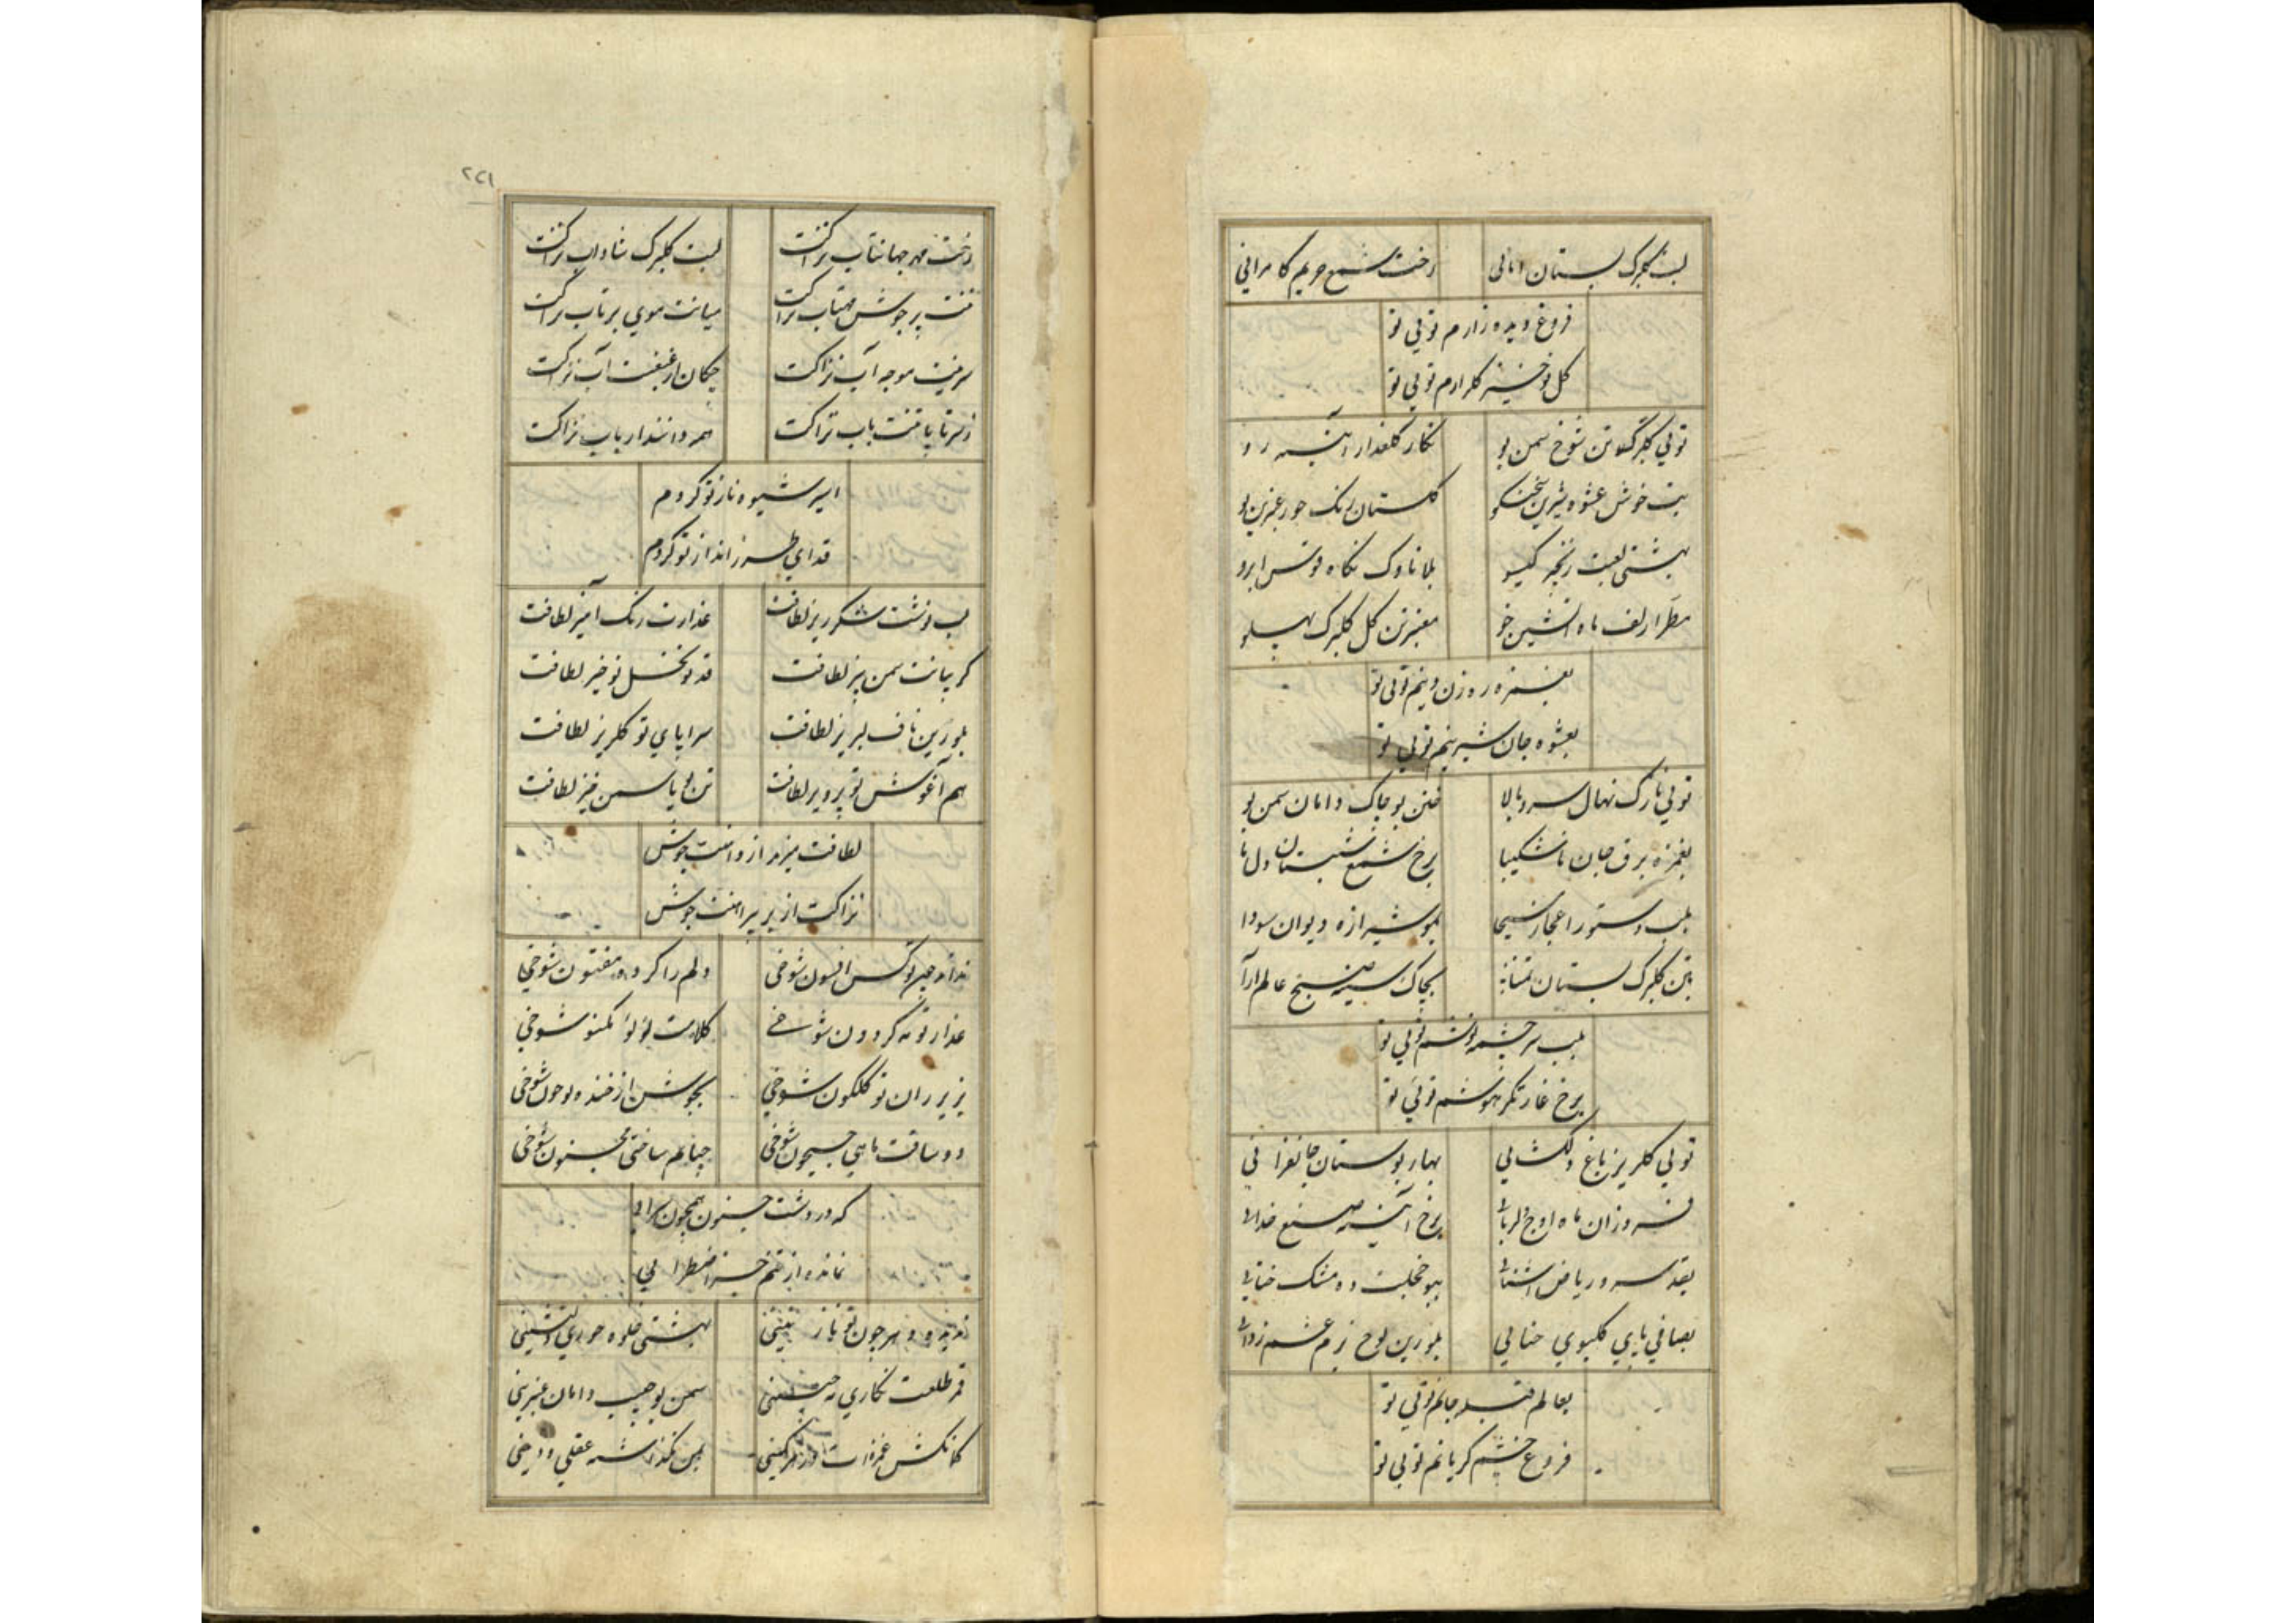 لبت گلبرگ بستان امانی رخت شمع حریم کامرانی
فروغ دیده زارم تویی تو
گل نوخیز گلزارم تویی تو
تویی گلبرگ تن شوخ سمن بو نگار گلعذار آینه رو
بت خوش عشوه شیرین سخنگو گلستان رنگ حور عنبرین بو
بهشتی لعبت زنجیر گیسو بلا ناوک نگاه قوس ابرو
مطرا زلف ماه آتشین خو معنبر تن گل گلبرگ پهلو
بغمزه ره زن دینم تویی تو
بعشوه جان شیرینم تویی تو
تویی نازک نهال سرو بالا ختن بو چاک دامان سمن بو
بغمزه برق جان ناشکیبا برخ شمع شبستان دل ما
بلب دستور اعجاز مسیحا بمو شیرازه دیوان سودا
بتن گلبرگ بستان تمنا بچاک سینه صبح عالم آرا
بلب سرچشمه نوشم تویی تو
برخ غارتگر هوشم تویی تو
تویی گلریز باغ دلگشایی بهار بوستان جانفزایی
فروزان ماه اوج دلربایی برخ آئینه صنع خدایی
بقد سرو ریاض آشنایی ببو خجلت ده مشک ختایی
بصافی پای گلبوی حنایی بلورین لوح بزم غم زدایی
بعالم قبله جانم تویی تو
فروغ چشم گریانم تویی تو
۲۷۱
رخت مهر جهانتاب نزاکت لبت گلبرگ شاداب نزاکت
تنت پر جوش مهتاب نزاکت میانت موی پرتاب نزاکت
سرینت موجه آب نزاکت چکان از غبغبت آب نزاکت
ز سر تا پا تنت باب نزاکت همه دانند ارباب نزاکت
اسیر شیوه ناز تو کردم
فدای طرز انداز تو کردم
لب نوشت شکرریز لطافت عذارت رنگ آمیز لطافت
گریبانت سمن بیز لطافت قدت نخل نوخیز لطافت
بلورین ناف لبریز لطافت سراپای تو گلریز لطافت
هم آغوش تو پرویز لطافت تن یاسمن خیز لطافت
لطافت میزند از دامنت جوش
نزاکت از بر پیراهنت جوش
نداند چون تو کس افسون شوخی دلم را کرده مفتون شوخی
عذار تو مه گردون شوخی کلامت لؤلؤ مکنون شوخی
بزیر ران تو گلگون شوخی بجوش از خنده ات خون شوخی
دو ساقت ماهی جیحون شوخی چنانم ساختی مجنون شوخی
که در دشت جنون همچون سرابی
نمانده از تنم جز اضطرابی
ندیده دهر چون تو نازنینی بهشتی جلوه حوری نشینی
قمر طلعت نگاری مه جبینی سمن بو جیب دامان عنبرینی
کمانکش غمزه ات در کمینی بمن نگذاشته عقلی و دینی